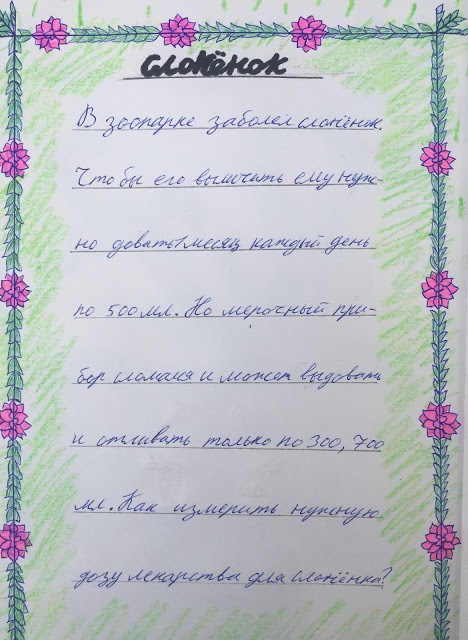 слонёнок
В зоопарке заболел слонёнок.
Что бы его выличить ему нуж-
но довать 1 месяц каждый день
по 500 мл. Но мерочный при-
бор сломался и может выдовать
и отливать только по 300, 700
мл. Как измерить нужную
дозу лекарства для слонёнка?